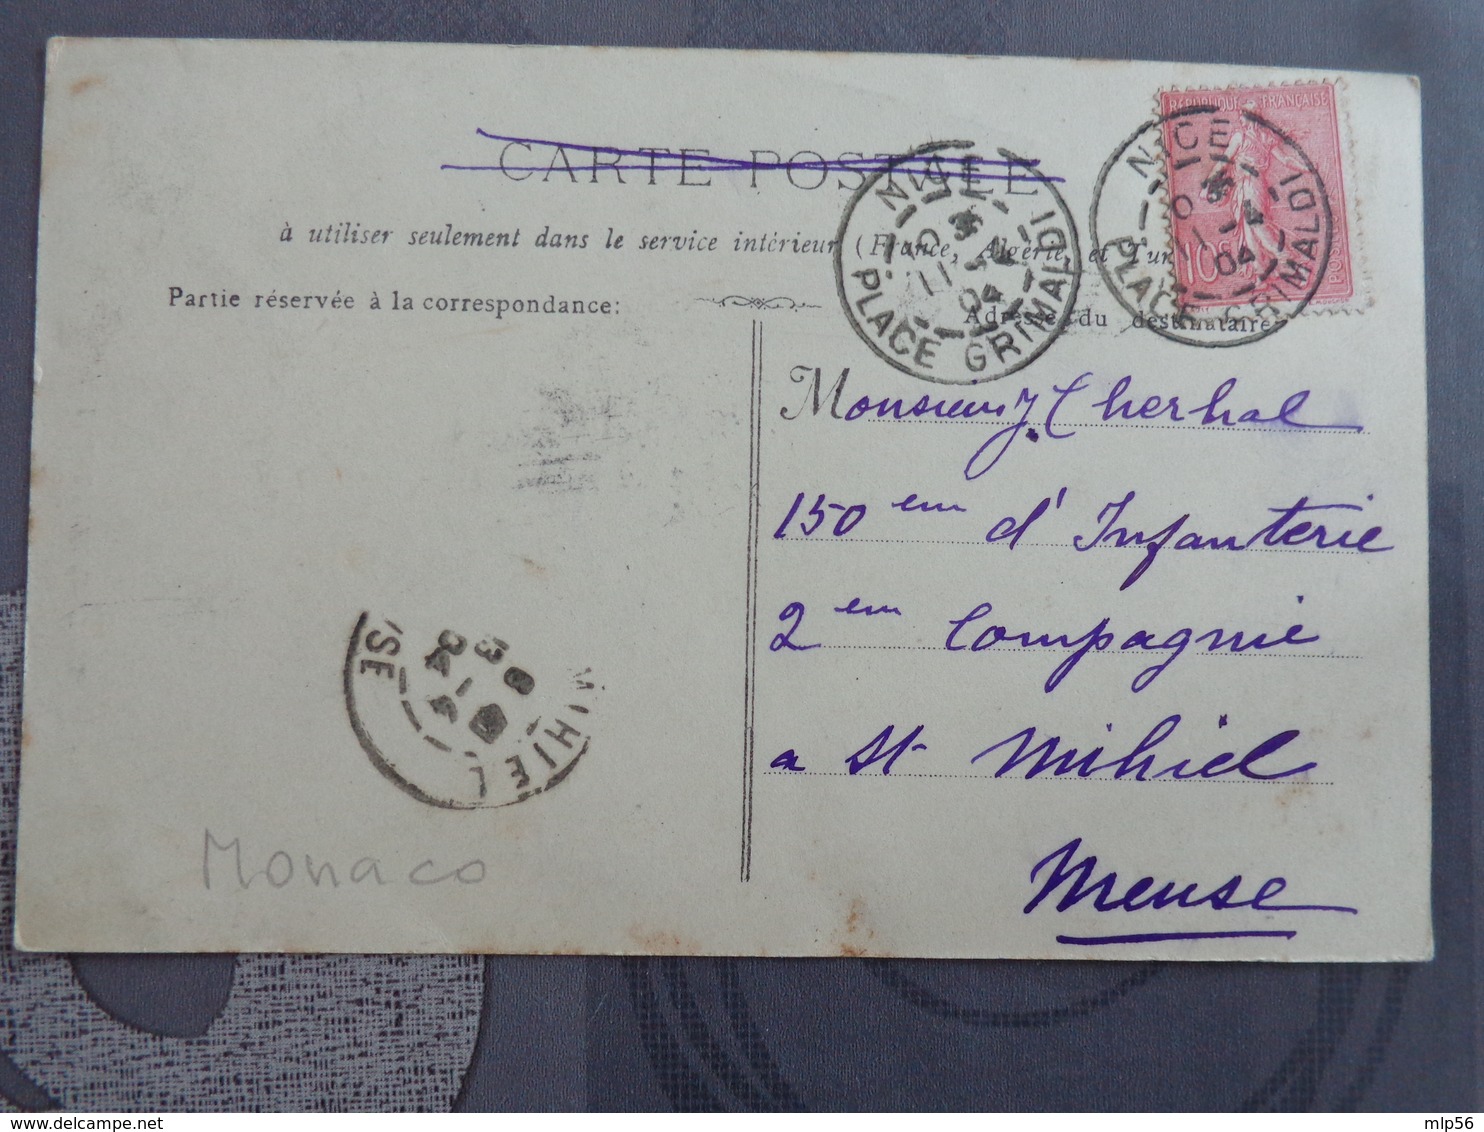 RÉPUBLIQUE FRANÇAISE
10c
NICE
11 - 4
04
PLACE GRIMALDI
NICE
11
04
PLACE GRIMALDI
CARTE POSTALE
à utiliser seulement dans le service intérieur (France, Algérie et Tun
Partie réservée à la correspondance:
Adresse du destinataire
Monsieur J. Cherhal
150 em d'Infanterie
2 em Compagnie
a St Mihiel
Meuse
MIHIEL
04
Monaco
delcampe.net
mlp56